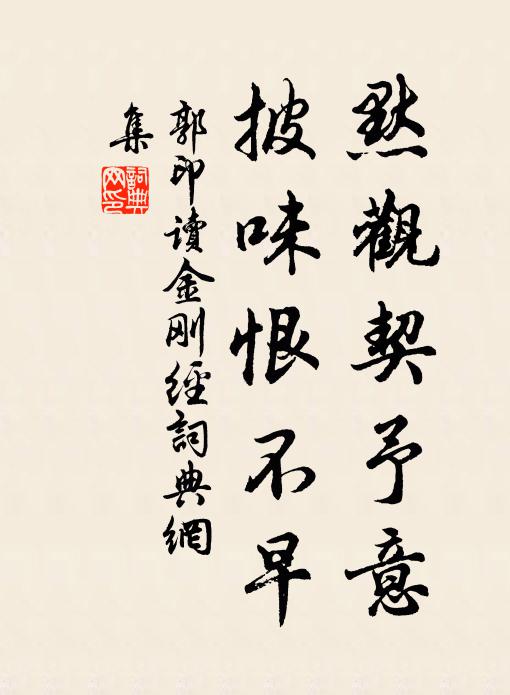 默觀契予意
披味恨不早
郭印讀金剛經詞典網
集
詞典网印